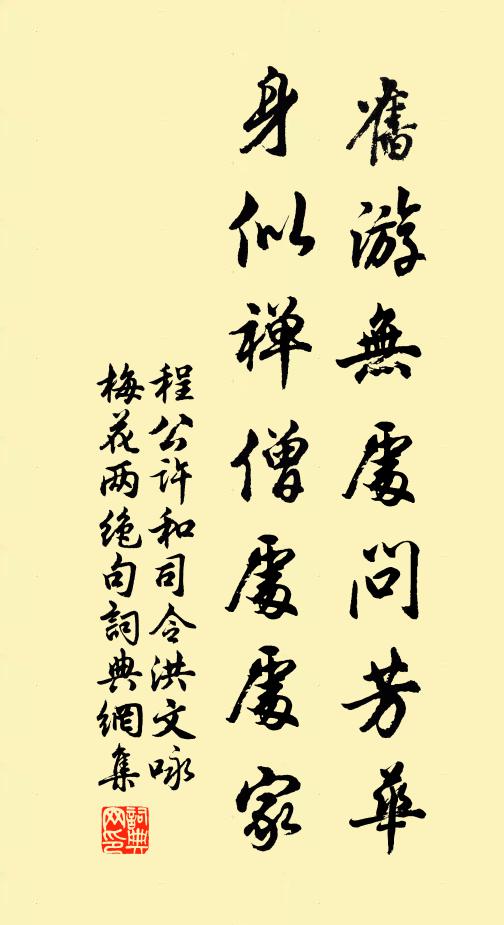 舊游無處問芳華
身似禅僧處處家
程公许和司令洪文咏
梅花两绝句詞典網集
詞典
网印